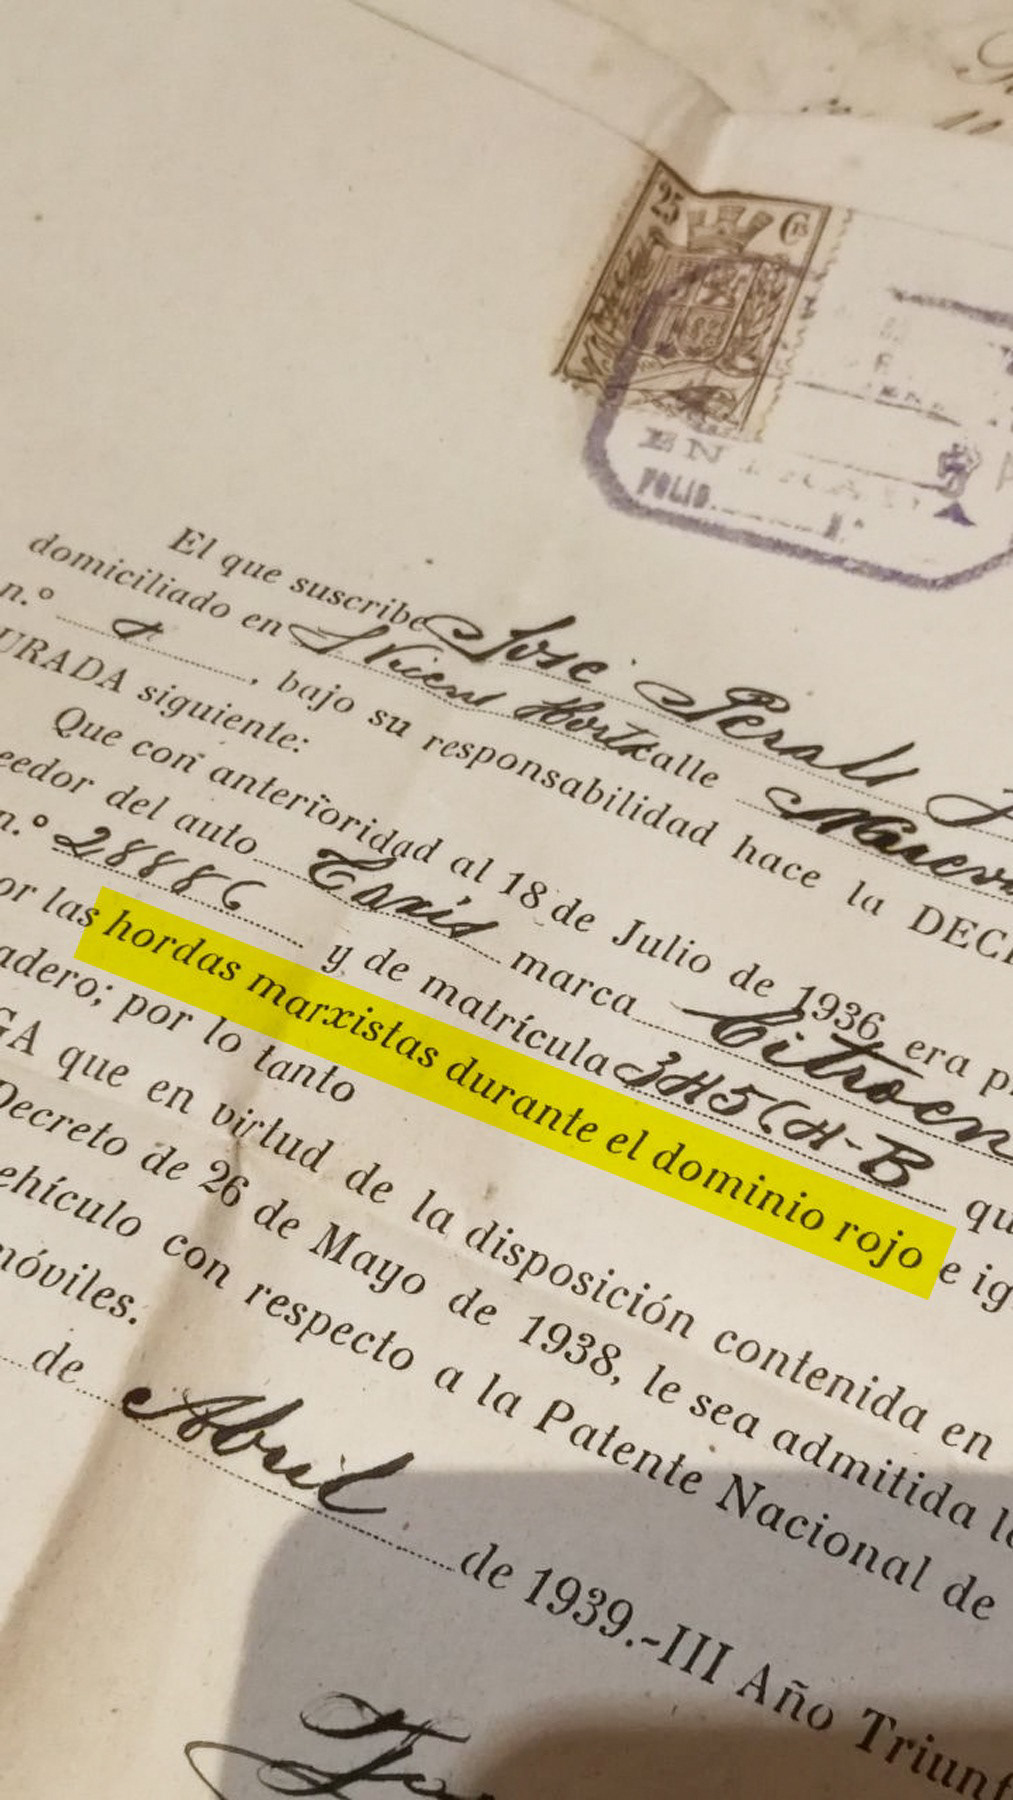 25 Cts
EN
FOLIO N.º
El que suscribe Jose Perals
domiciliado en S Vicens Horts calle
n.º , bajo su responsabilidad hace la DECL
URADA siguiente:
Que con anterioridad al 18 de Julio de 1936, era p
eedor del auto marca Citroen
n.º 28886 y de matrícula qu
or las hordas marxistas durante el dominio rojo e ig
adero; por lo tanto
GA que en virtud de la disposición contenida en
Decreto de 26 de Mayo de 1938, le sea admitida l
ehículo con respecto a la Patente Nacional de
móviles.
de Abril de 1939.-III Año Triunf